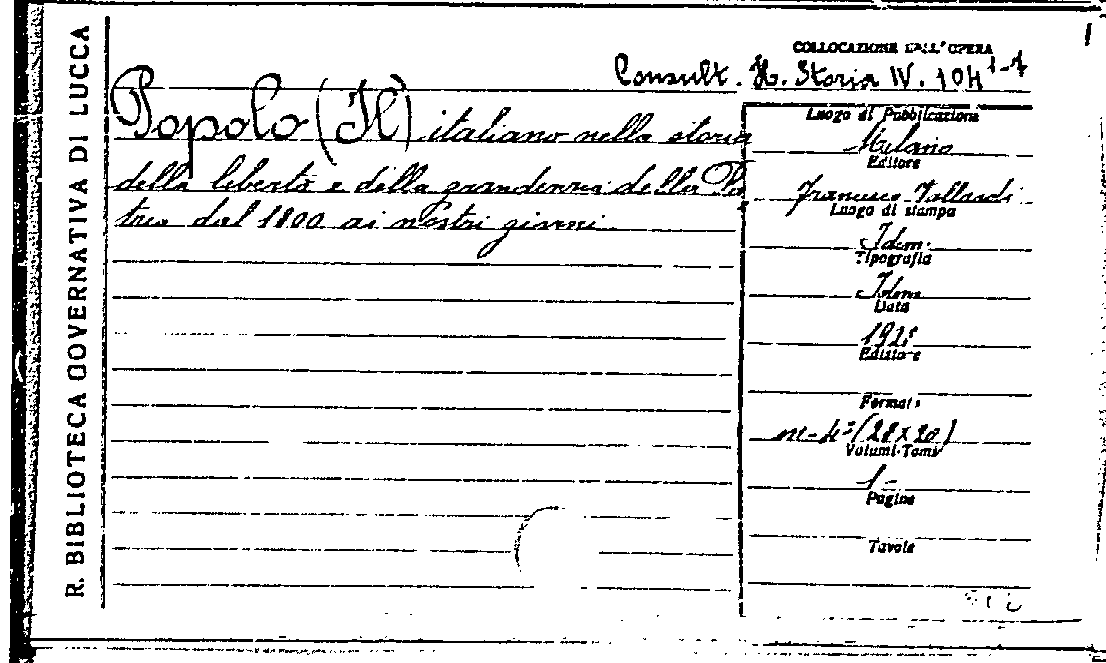 R. BIBLIOTECA GOVERNATIVA DI LUCCA
COLLOCAZIONE DELL'OPERA
Consult. H. Storia IV. 104
Popolo (Il) italiano nella storia
della libertà e della grandezza della Pa
tria dal 1800 ai nostri giorni
Luogo di Pubblicazione
Milano
Editore
Francesco Vallardi
Luogo di stampa
Idem.
Tipografia
Idem
Data
Edizione
Formato
in-4° (28x20)
Volumi-Tomi
1-
Pagine
Tavole